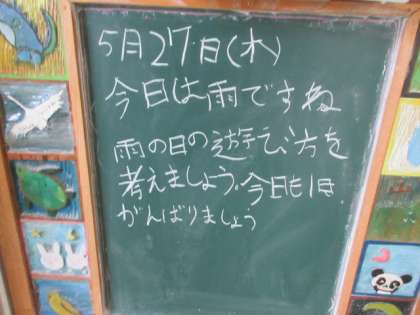 5月27日(木)
今日は雨ですね
雨の日の遊び方を
考えましょう。今日も1日
がんばりましょう